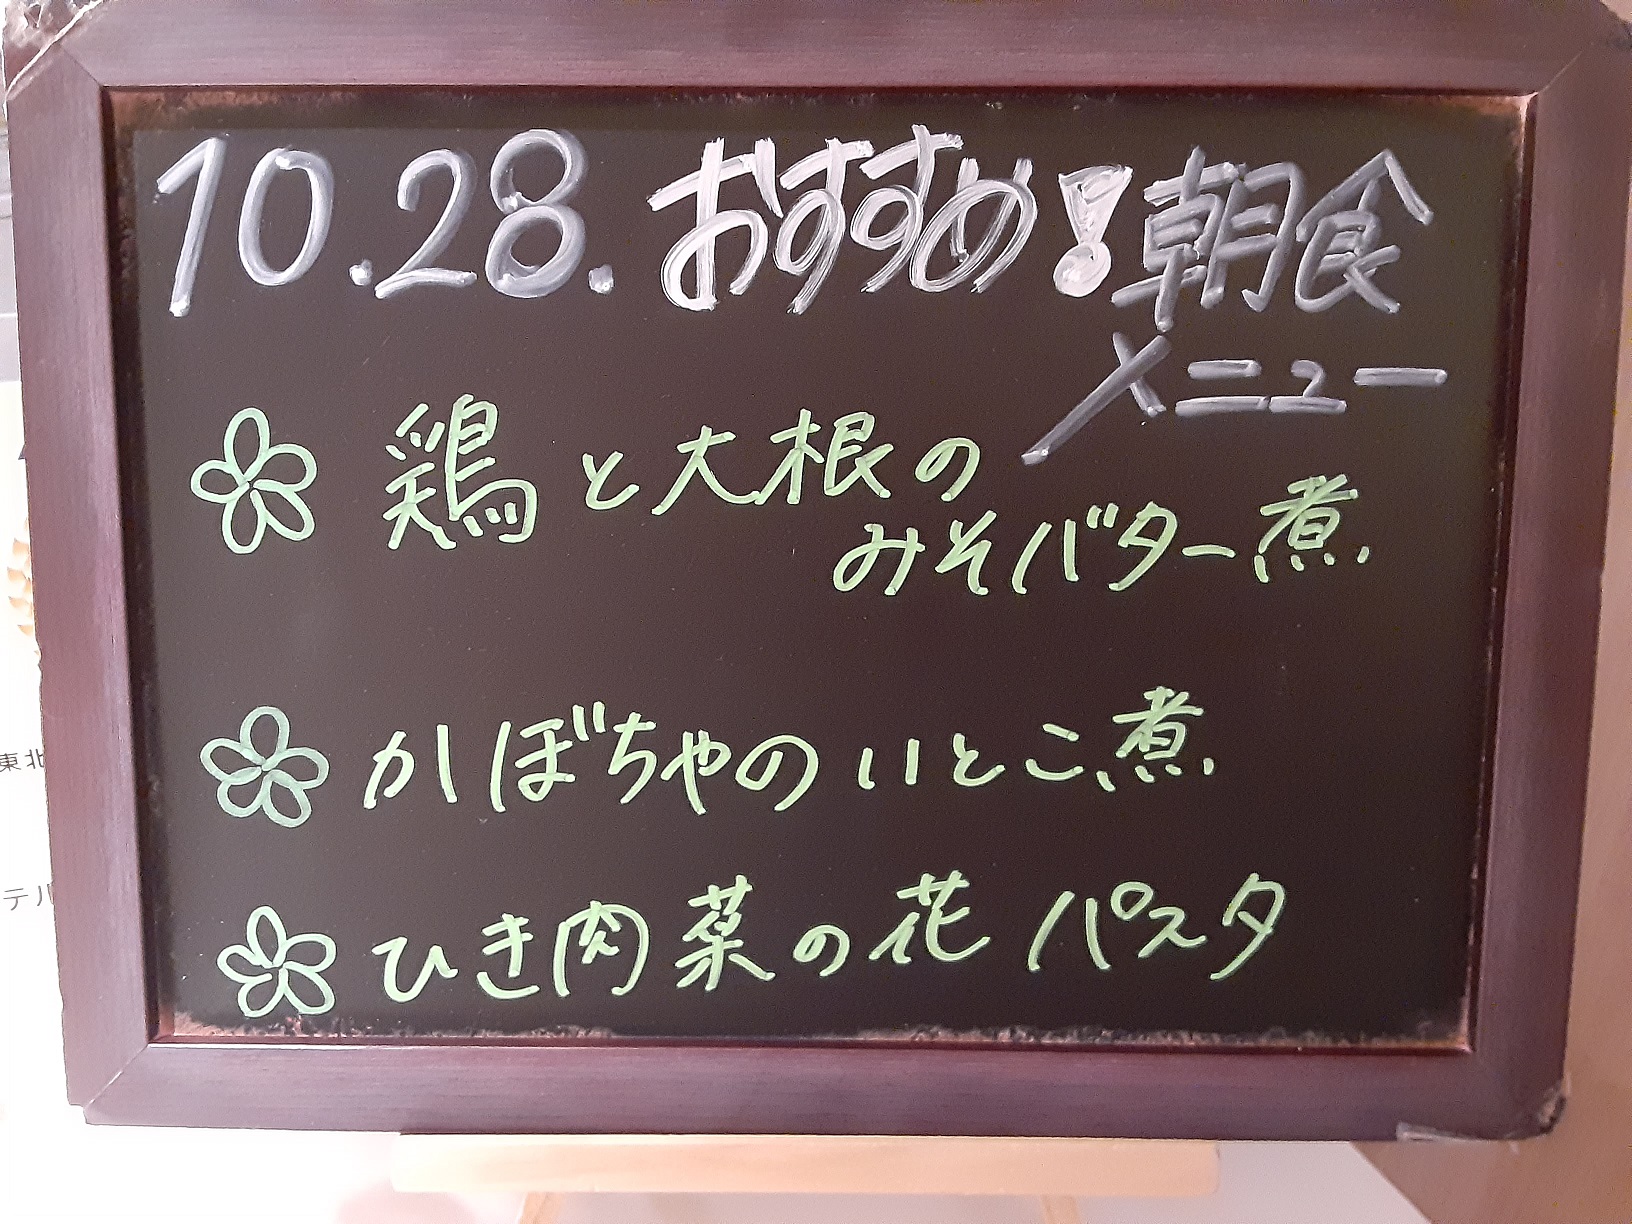 10.28.おすすめ!朝食
メニュー
鶏と大根の
みそバター煮
かぼちゃのいとこ煮
ひき肉菜の花パスタ
東北
テル